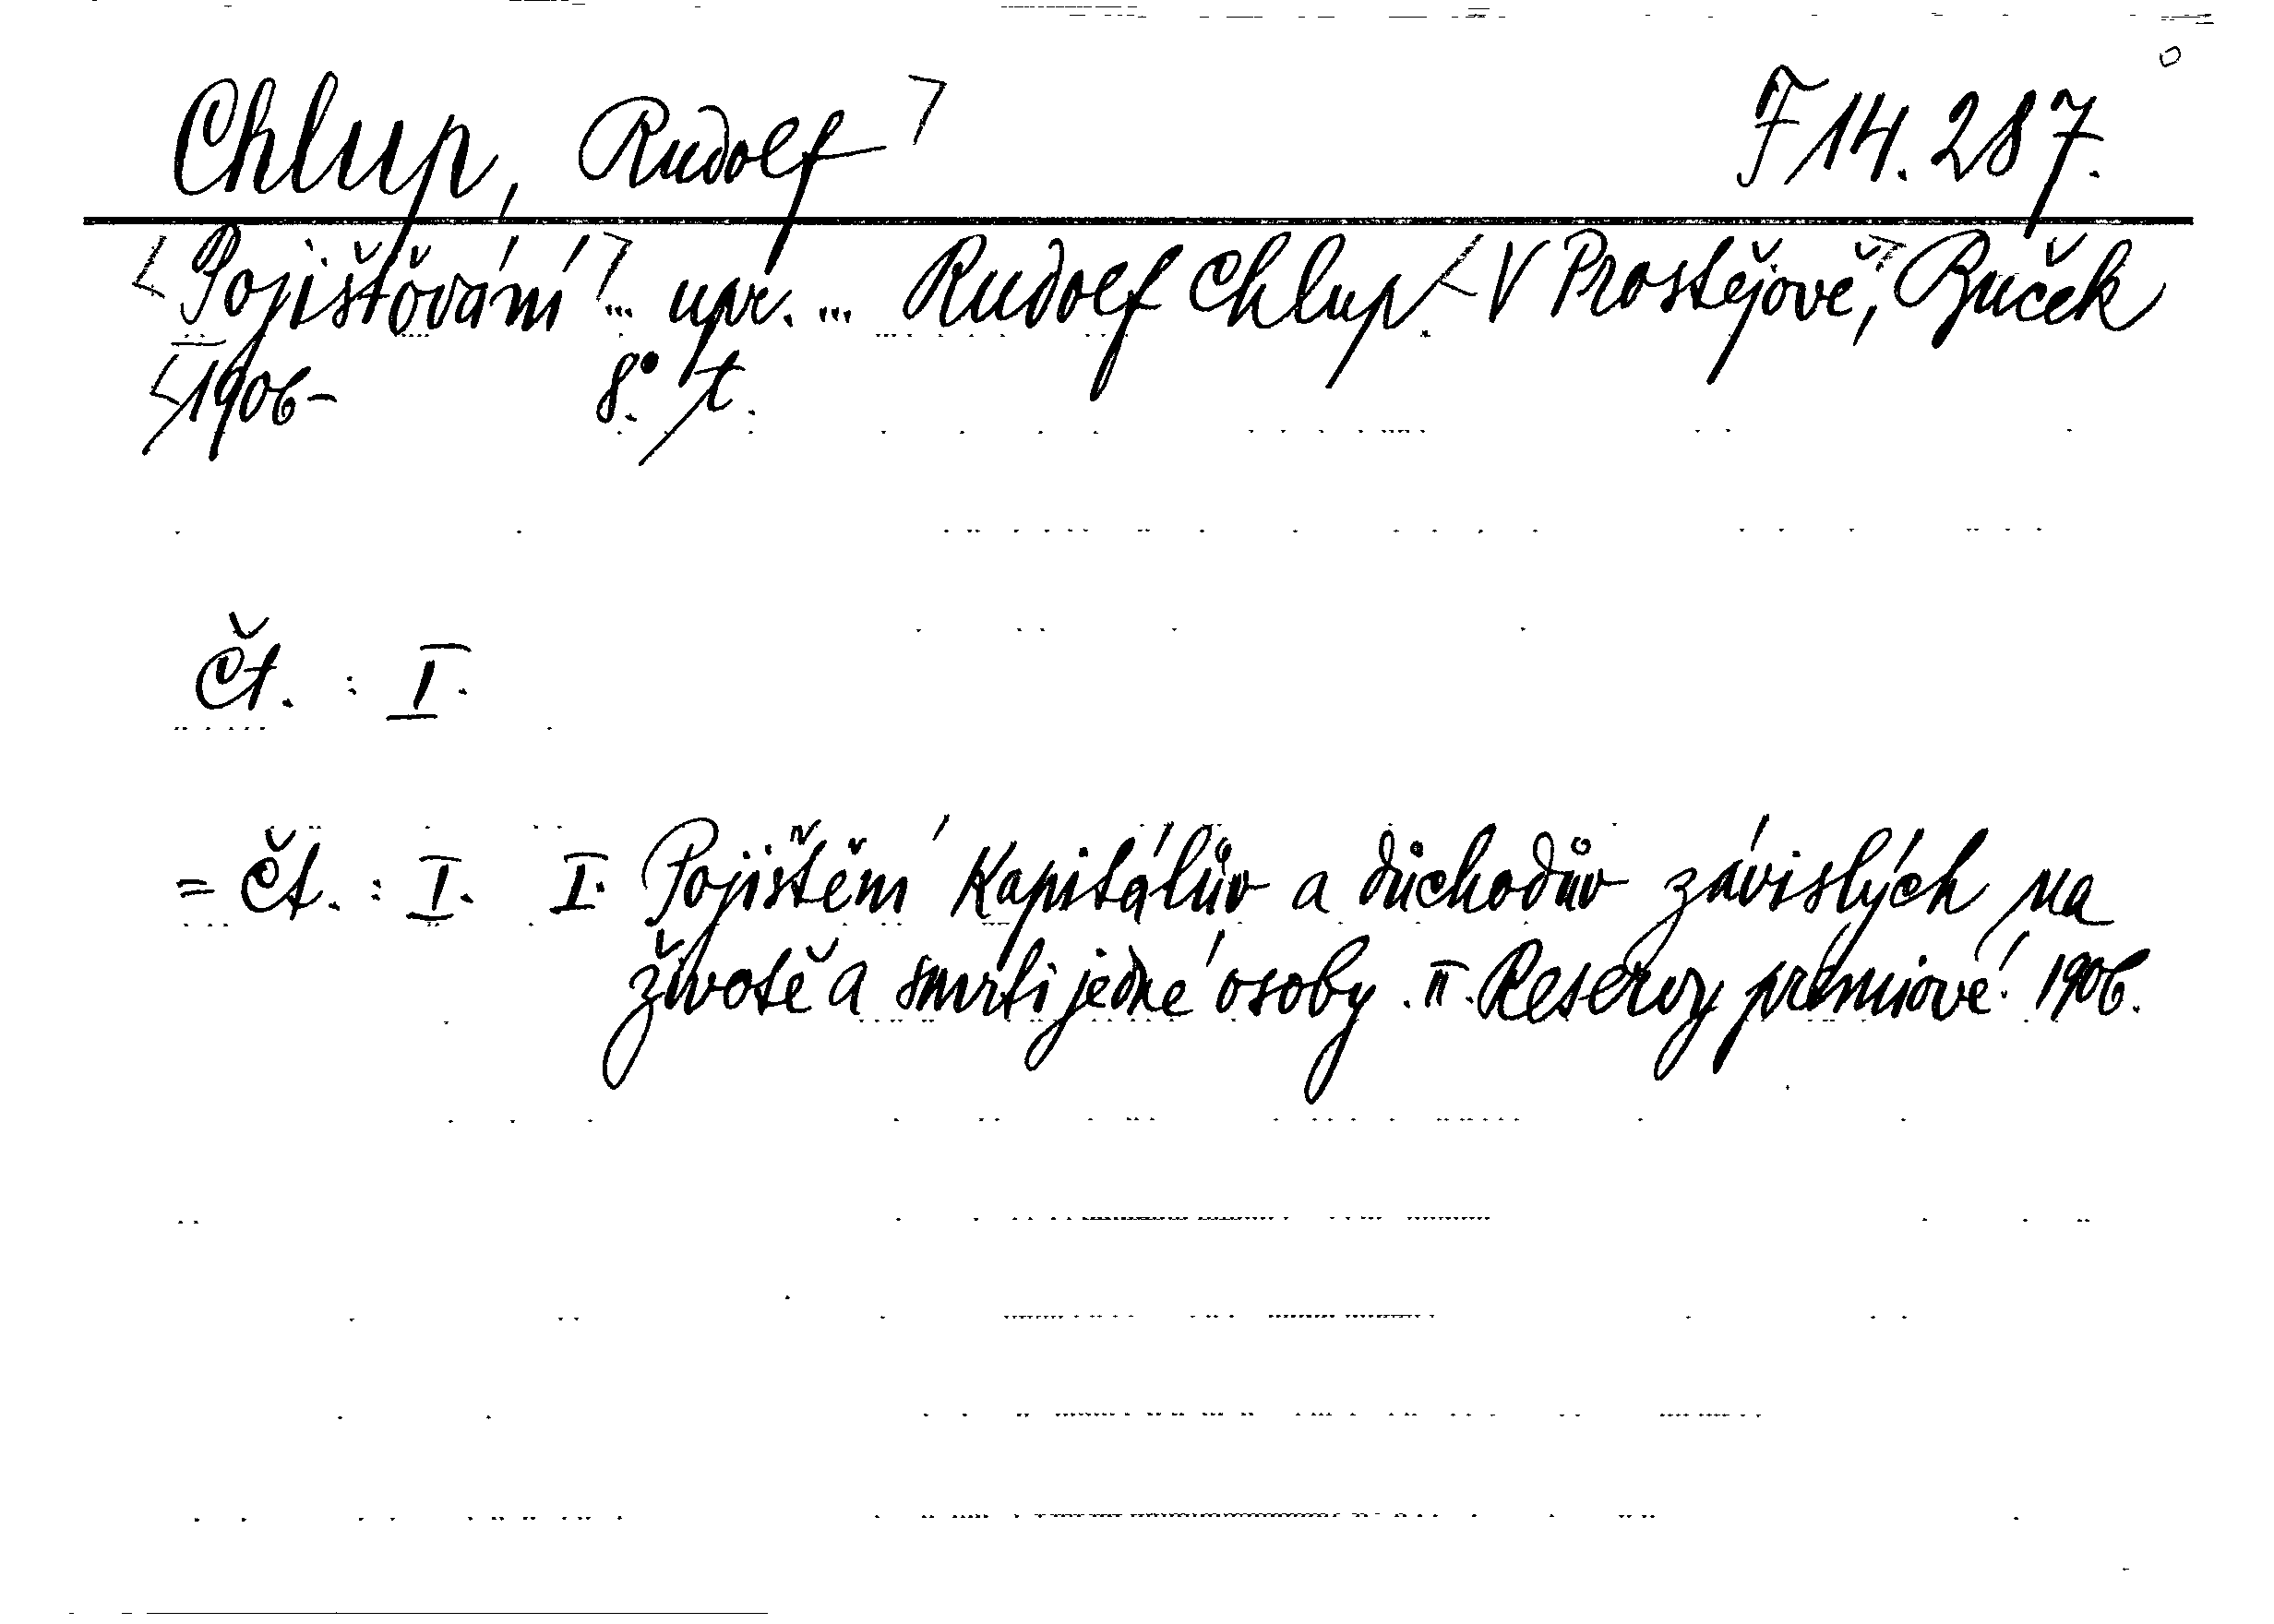 Chlup, Rudolf F 14.287.
Pojišťování ... upr. ... Rudolf Chlup. V Prostějově, Buček
1906- 8°. t.
Čt. : I.
= Čt. : I. I. Pojištění kapitálův a důchodův závislých na
životě a smrti jedné osoby. II. Reservy prémiové. 1906.